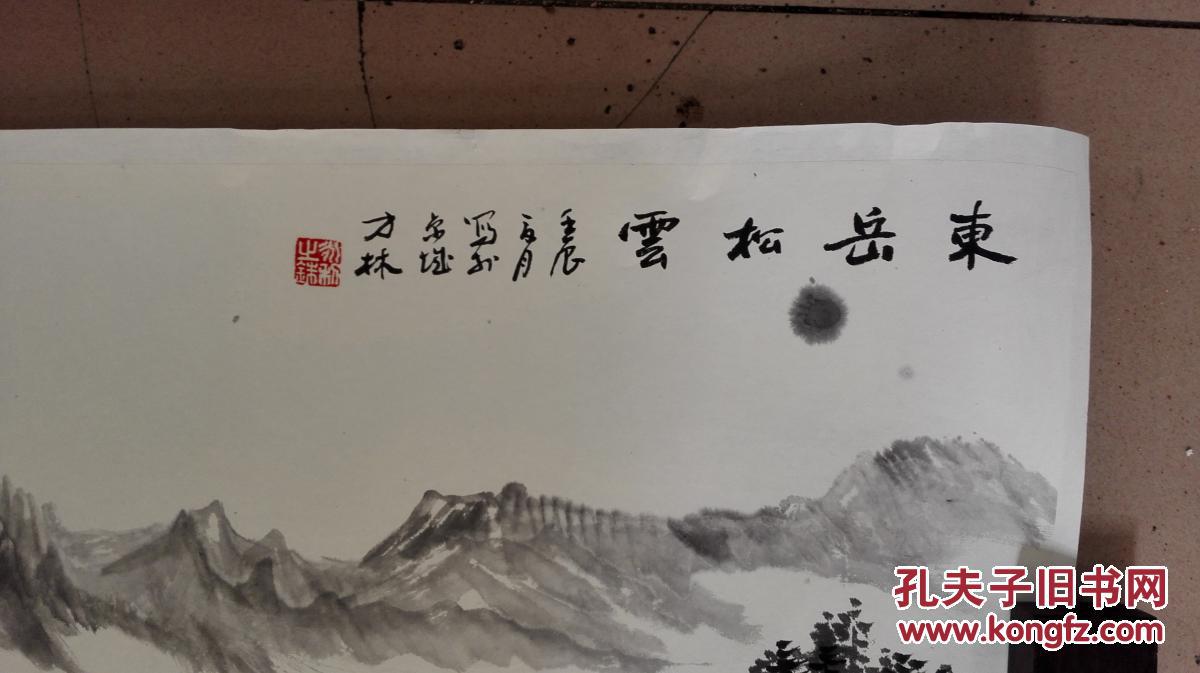 東岳松雲
壬辰
月
写於
京城
方林
孔夫子旧书网
www.kongfz.com